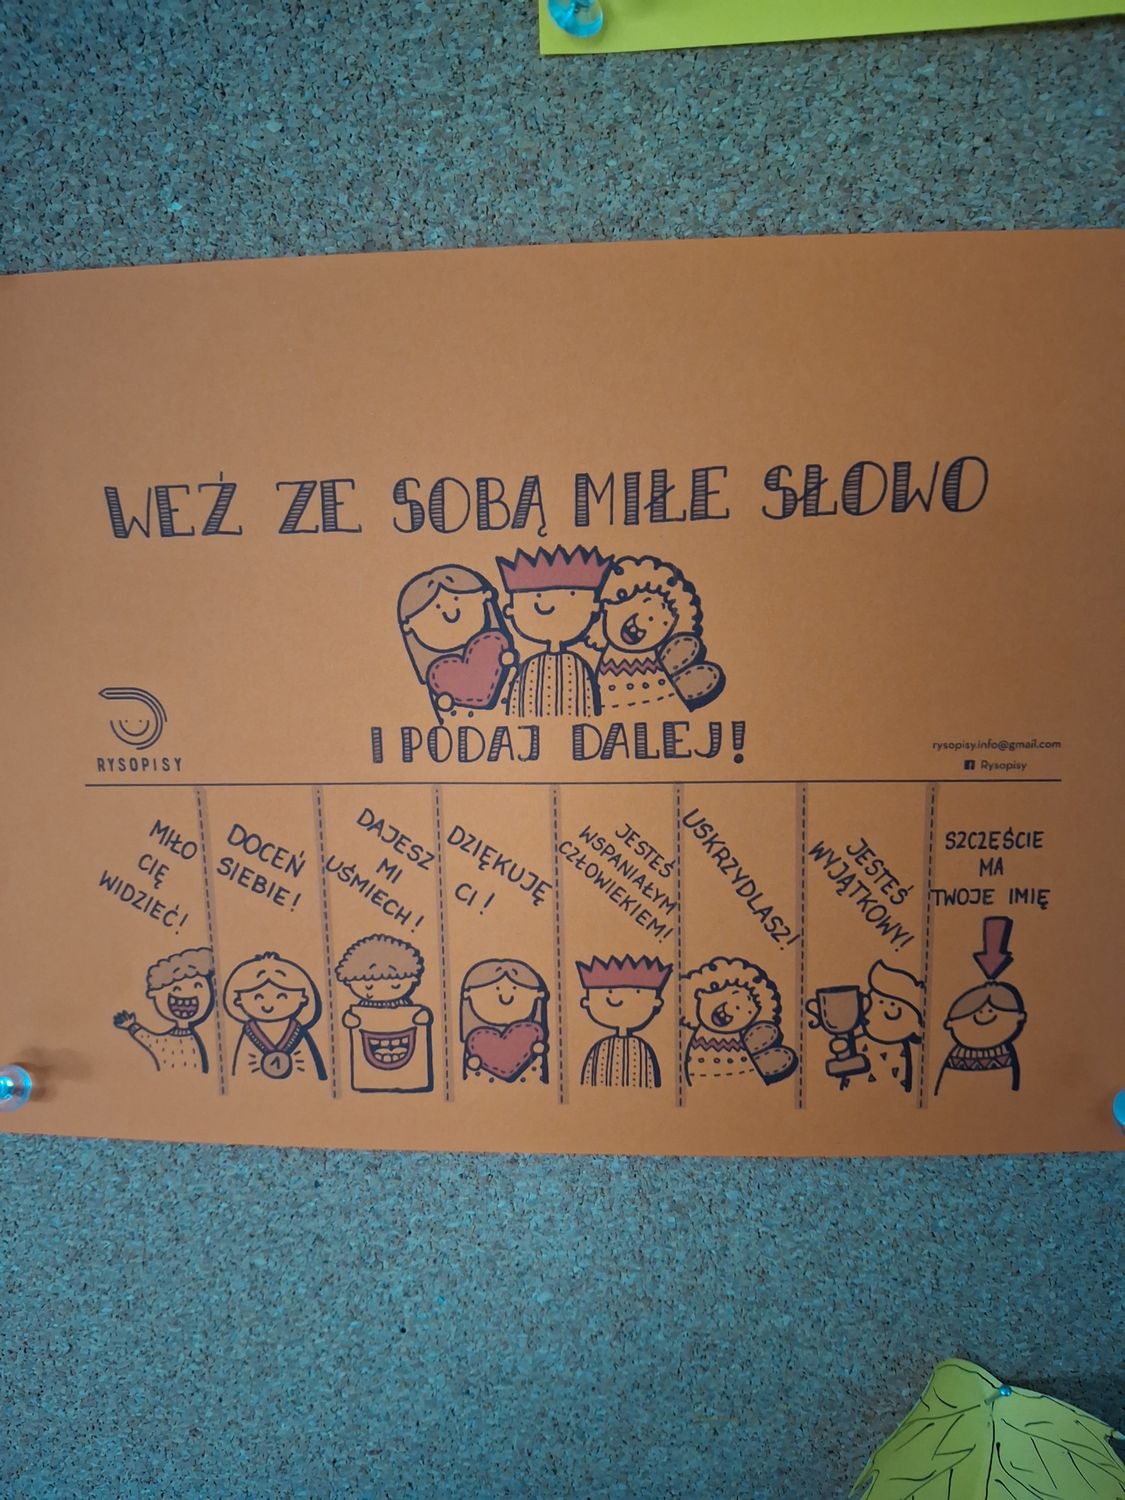 WEŹ ZE SOBĄ MIŁE SŁOWO
I PODAJ DALEJ!
RYSOPISY
rysopisy.info@gmail.com
Rysopisy
MIŁO
CIĘ
WIDZIEĆ!
DOCEŃ
SIEBIE!
DAJESZ
MI
UŚMIECH!
DZIĘKUJĘ
CI!
JESTEŚ
WSPANIAŁYM
CZŁOWIEKIEM!
USKRZYDLASZ!
JESTEŚ
WYJĄTKOWY!
SZCZĘŚCIE
MA
TWOJE IMIĘ
1